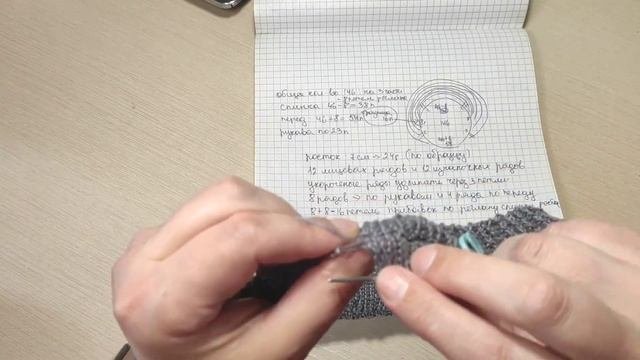 общее кол во 146 на 3 части
- 8 петель реглана
спинка 46 - 8 = 38п
перед 46 + 8 = 54п разница 16п
рукава по 23п
146
росток 7 см => 24р (по образцу)
12 лицевых рядов и 12 изнаночных рядов
укороченые ряды удлинять через 3 петли
8 рядов -> по рукавам и 4 ряда по переду
8 + 8 = 16 петель прибавок по реглану спинки